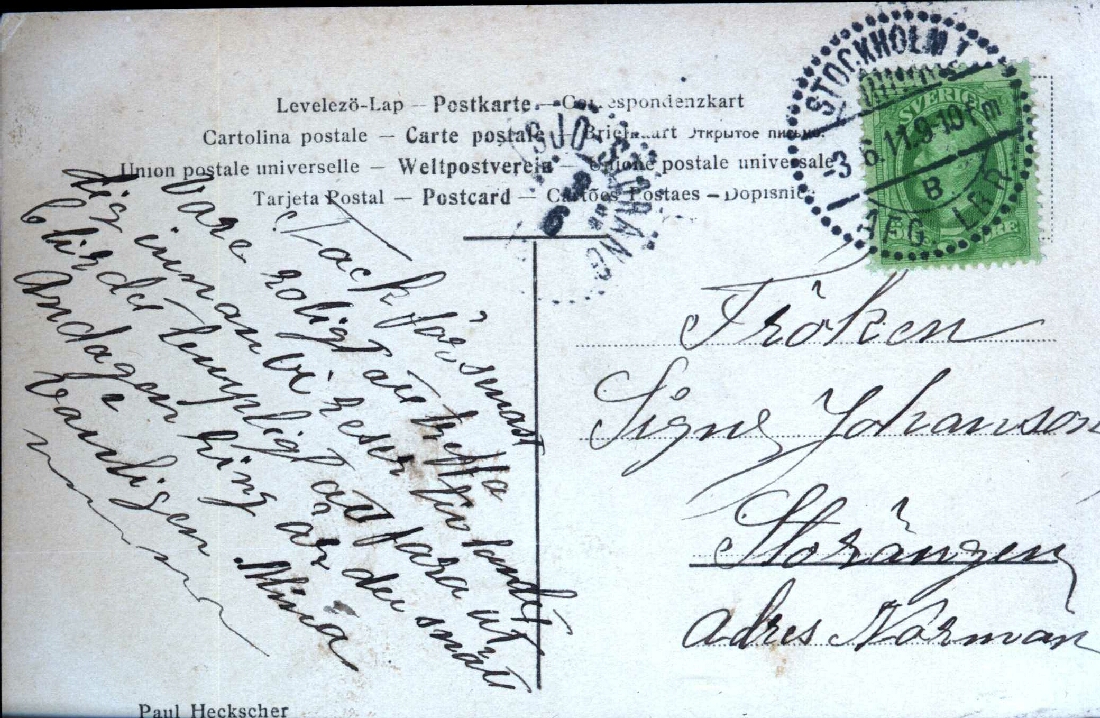 Levelező-Lap — Postkarte — Correspondenzkart
Cartolina postale — Carte postale — Briefkaart Открытое письмо.
Union postale universelle — Weltpostverein — Unione postale universale
Tarjeta Postal — Postcard — Cartões Postaes — Dopisnice
STOCKHOLM 1
-3 6.11.9-10 Fm
B
AFG
SVERIGE
5 ÖRE
Tack för senast
vore roligt att träffa
dig innan vi reser till landet
blir det lempligt att fara ut
Andagen Ring är du snäll
Vänligen Mina
Fröken
Signe Johanson
Storängen
Adres Norman
Paul Heckscher